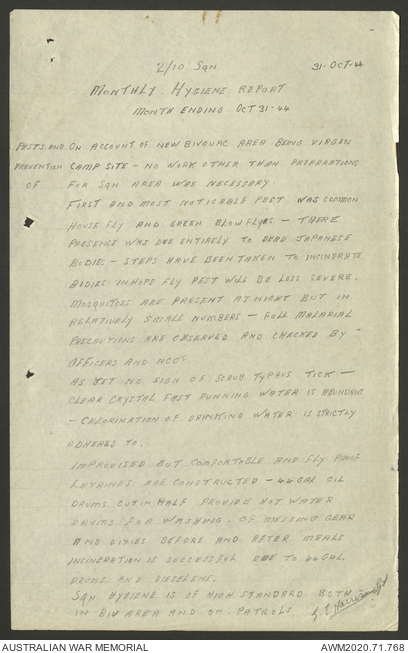 2/10 Sqn
31-OCT-44
MONTHLY HYGIENE REPORT
MONTH ENDING OCT 31-44
PESTS AND ON ACCOUNT OF NEW BIVOUAC AREA BEING VIRGIN
PREVENTION CAMP SITE - NO WORK OTHER THAN PREPARATIONS
OF FOR SQN AREA WAS NECESSARY
FIRST AND MOST NOTICABLE PEST WAS COMMON
HOUSE FLY AND GREEN BLOW FLYES - THERE
PRESENCE WAS DUE ENTIRELY TO DEAD JAPANESE
BODIES - STEPS HAVE BEEN TAKEN TO INCINERATE
BODIES IN HOPE FLY PEST WILL BE LESS SEVERE.
MOSQUITOES ARE PRESENT AT NIGHT BUT IN
RELATIVELY SMALL NUMBERS - FULL MALARIAL
PRECAUTIONS ARE OBSERVED AND CHECKED BY -
OFFICERS AND NCOS
AS YET NO SIGN OF SCRUB TYPHUS TICK -
CLEAR CRYSTAL FAST RUNNING WATER IS ABUNDANT
- CHLORINATION OF DRINKING WATER IS STRICTLY
ADHERED TO.
IMPROVISED BUT COMFORTABLE AND FLY PROOF
LATRINES ARE CONSTRUCTED - 44 GAL OIL
DRUMS CUT IN HALF PROVIDE HOT WATER
DRUMS FOR WASHING. OF MESSING GEAR
AND DIXIES BEFORE AND AFTER MEALS
INCINERATION IS SUCCESSFUL DUE TO 44 GAL
DRUMS AND DIESELENE.
SQN HYGIENE IS OF HIGH STANDARD BOTH
IN BIV AREA AND ON PATROLS Harrison Sgt
AUSTRALIAN WAR MEMORIAL
AWM2020.71.768